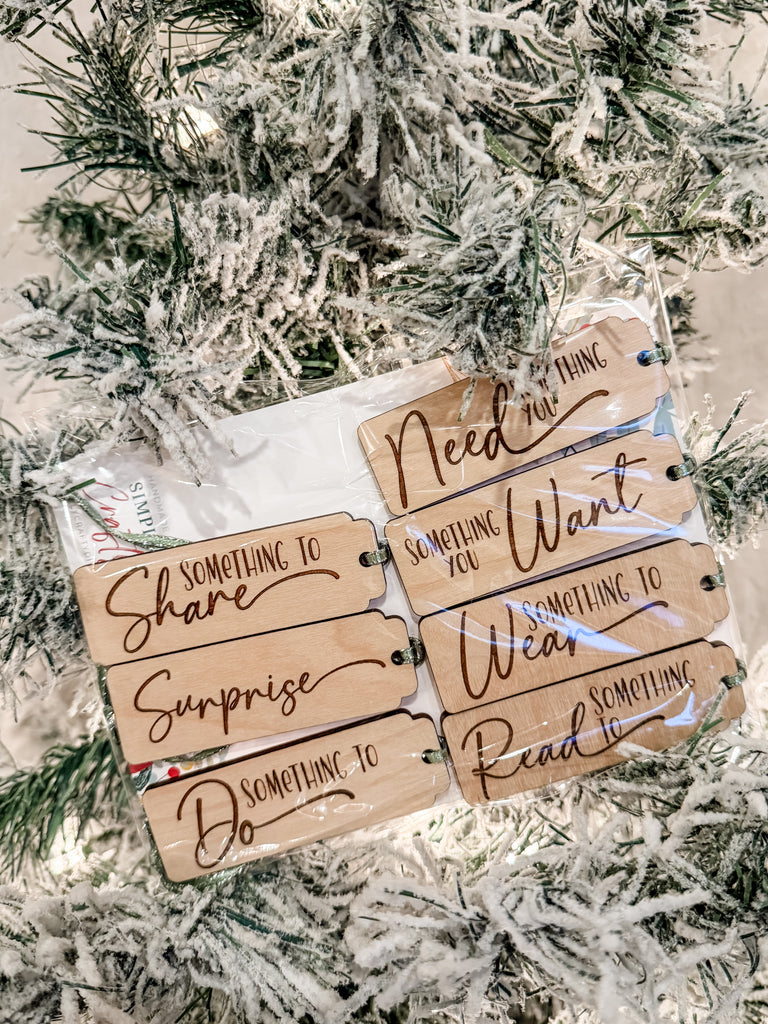 Need
YOU
SOMETHING
YOU
Want
SOMETHING TO
Share
SOMETHING TO
Wear
Surprise
SOMETHING
TO
Read
SOMETHING TO
Do